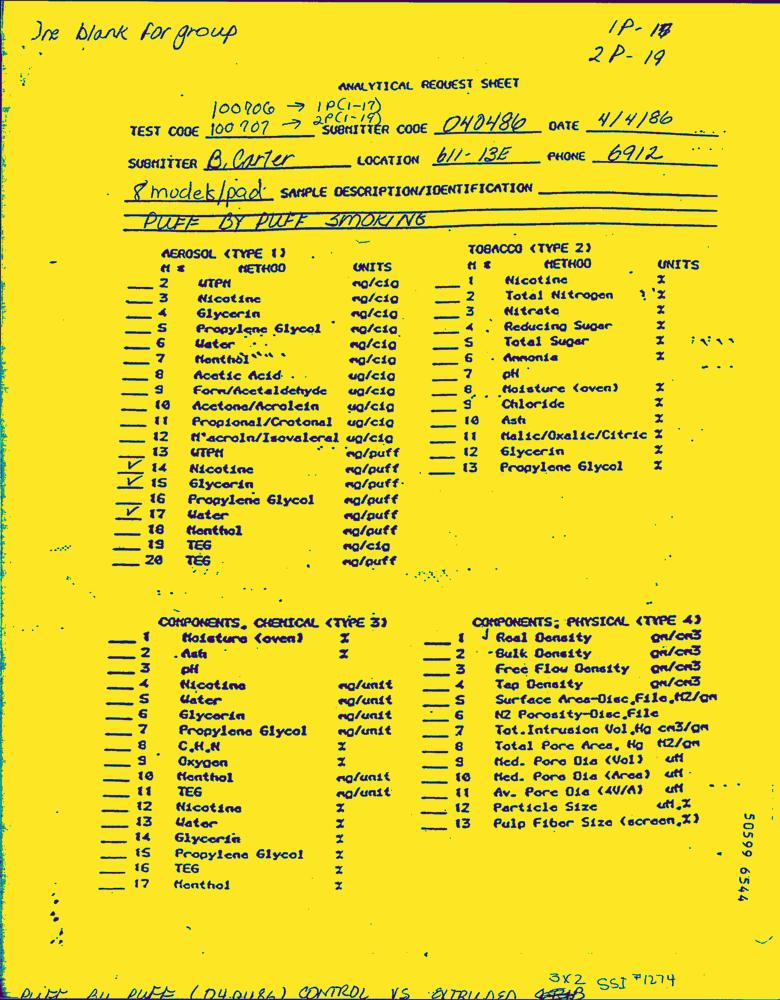 One blank for group
1P-17
2P-19
ANALYTICAL REQUEST SHEET
100706 → 1P(1-17)
TEST CODE 100707 → 2P(1-19) SUBMITTER CODE 040486 DATE 4/4/86
SUBMITTER B. Carter LOCATION 611-13E PHONE 6912
8 models/pad SAMPLE DESCRIPTION/IDENTIFICATION
PUFF BY PUFF SMOKING
AEROSOL (TYPE 1)
M # METHOD UNITS
2 WTPM mg/cig
3 Nicotine mg/cig
4 Glycerin mg/cig
5 Propylene Glycol mg/cig
6 Water mg/cig
7 Menthol mg/cig
8 Acetic Acid ug/cig
9 Form/Acetaldehyde ug/cig
10 Acetone/Acrolein ug/cig
11 Propional/Crotonal ug/cig
12 M'acroln/Isovaleral ug/cig
13 WTPM mg/puff
✓ 14 Nicotine mg/puff
✓ 15 Glycerin mg/puff
16 Propylene Glycol mg/puff
✓ 17 Water mg/puff
18 Menthol mg/puff
19 TEG mg/cig
20 TEG mg/puff
TOBACCO (TYPE 2)
M # METHOD UNITS
1 Nicotine %
2 Total Nitrogen %
3 Nitrate %
4 Reducing Sugar %
5 Total Sugar %
6 Ammonia %
7 pH
8 Moisture (oven) %
9 Chloride %
10 Ash %
11 Malic/Oxalic/Citric %
12 Glycerin %
13 Propylene Glycol %
COMPONENTS, CHEMICAL (TYPE 3)
1 Moisture (oven) %
2 Ash %
3 pH
4 Nicotine mg/unit
5 Water mg/unit
6 Glycerin mg/unit
7 Propylene Glycol mg/unit
8 C,H,N %
9 Oxygen %
10 Menthol mg/unit
11 TEG mg/unit
12 Nicotine %
13 Water %
14 Glycerin %
15 Propylene Glycol %
16 TEG %
17 Menthol %
COMPONENTS, PHYSICAL (TYPE 4)
1 Real Density gm/cm3
2 Bulk Density gm/cm3
3 Free Flow Density gm/cm3
4 Tap Density gm/cm3
5 Surface Area-Disc,File,M2/gm
6 N2 Porosity-Disc,File
7 Tot.Intrusion Vol,Hg cm3/gm
8 Total Pore Area, Hg M2/gm
9 Med. Pore Dia (Vol) uM
10 Med. Pore Dia (Area) uM
11 Av. Pore Dia (4V/A) uM
12 Particle Size uM,%
13 Pulp Fiber Size (screen,%)
50599 6544
3X2 SSI #1274
PUFF BY PUFF (040486) CONTROL VS EXTRUDED